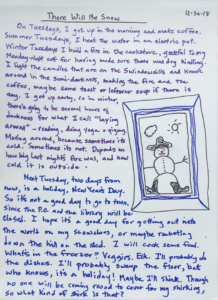 There Will Be Snow
12-30-18
On Tuesdays, I get up in the morning and make coffee.
Summer Tuesdays, I heat the water in an electric pot.
Winter Tuesdays I build a fire in the cookstove, grateful to my
Monday-night self for having made sure there was dry kindling.
I light the candles that are on the windowsills and knock
around in the semi-darkness, making the fire and the
coffee, maybe some toast or leftover soup if there is
any. I get up early, so in winter,
there's going to be several hours of
darkness for what I call "laying
around" – reading, doing yoga, a giging
around, because sometimes it's
cold. Sometimes its not. Depends on
how big last night's fire was, and how
cold it is outside.
Next Tuesday, two days from
now, is a holiday, New Years Day.
So it's not a good day to go to town,
since the P.O. and the library will be
closed. I hope it's a good day for getting out into
the world on my snowshoes, or maybe rocketing
down the hill on the sled. I will cook some food.
What's in the freezer? Veggies. Elk. I'll probably do
the dishes. I'll probably sweep the floor, but
who knows, it's a holiday! Maybe I'll shirk. Though
no one will be coming round to cover for my shirking
so what kind of shirk is that?